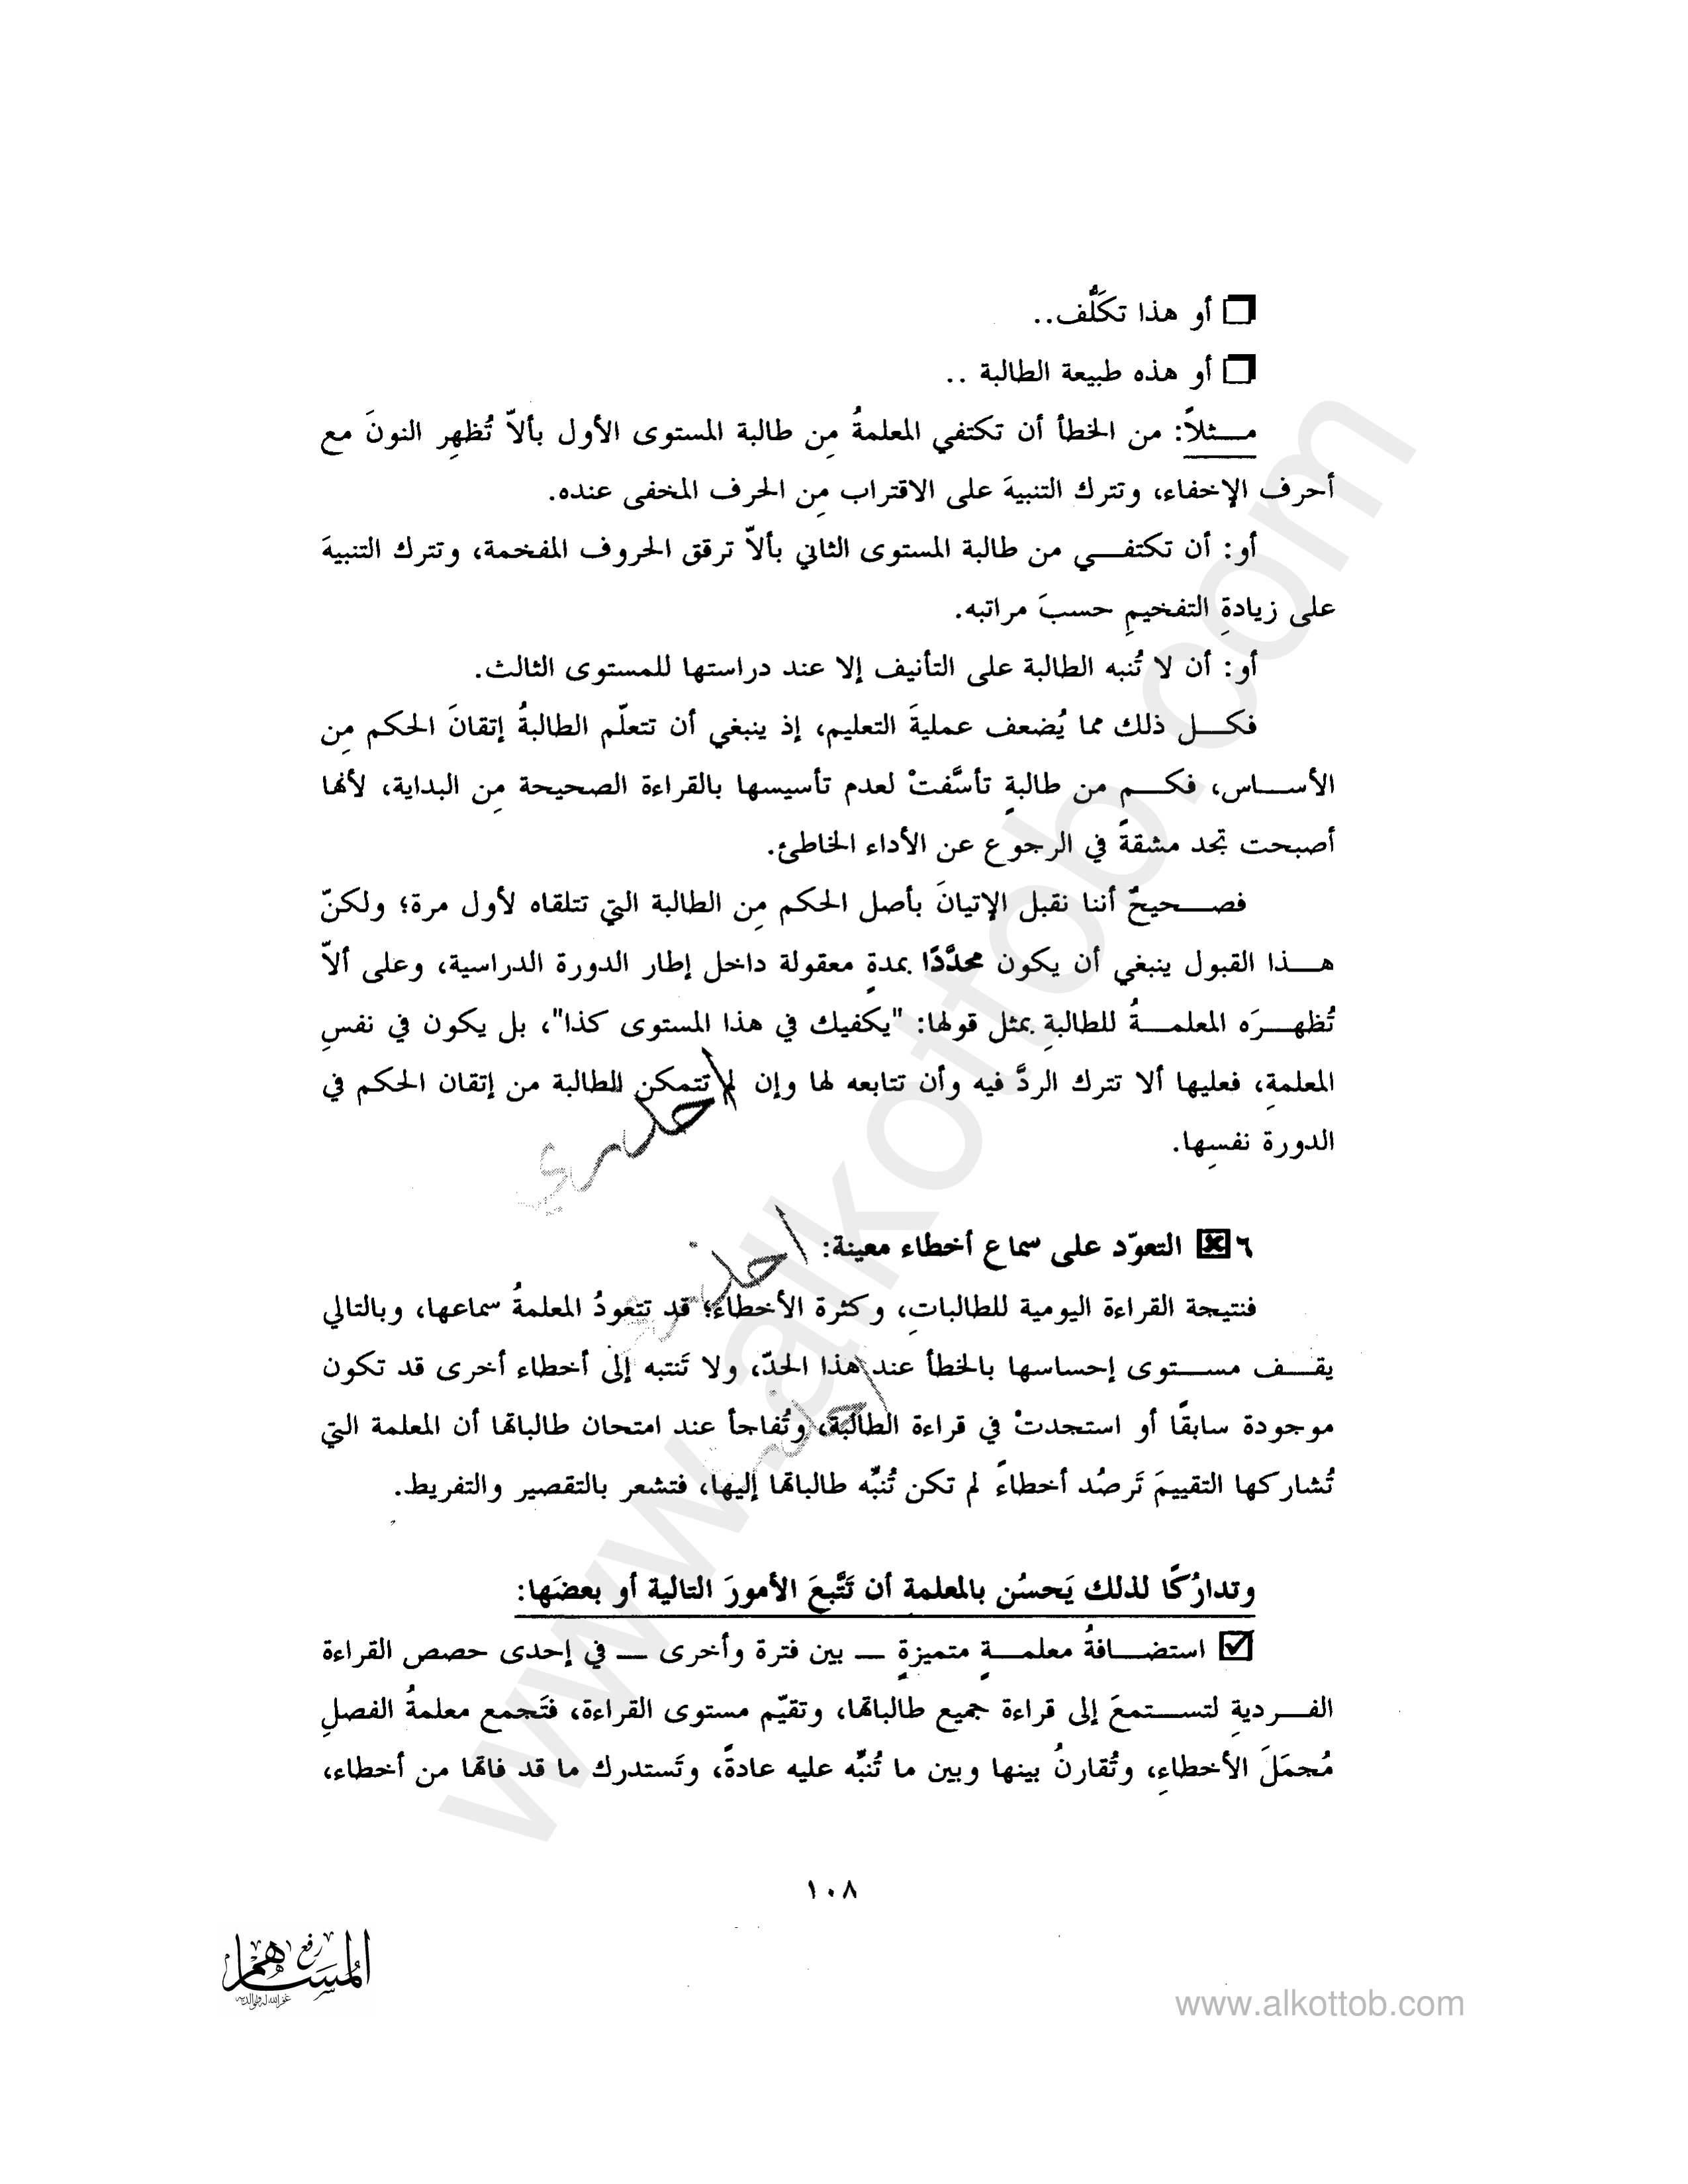 أو هذا تكَلُّف..
أو هذه طبيعة الطالبة ..
مـــثلاً: من الخطأ أن تكتفي المعلمةُ مِن طالبة المستوى الأول بألاّ تُظهِر النونَ مع
أحرف الإخفاء، وتترك التنبيهَ على الاقتراب مِن الحرف المخفى عنده.
أو: أن تكتفـــي من طالبة المستوى الثاني بألاّ ترقق الحروف المفخمة، وتترك التنبيهَ
على زيادةِ التفخيمِ حسبَ مراتبه.
أو: أن لا تُنبه الطالبة على التأنيف إلا عند دراستها للمستوى الثالث.
فكـــل ذلك مما يُضعف عمليةَ التعليم، إذ ينبغي أن تتعلّم الطالبةُ إتقانَ الحكم مِن
الأســـاس، فكـــم من طالبةٍ تأسَّفتْ لعدم تأسيسها بالقراءة الصحيحة مِن البداية، لأنها
أصبحت تجد مشقةً في الرجوع عن الأداء الخاطئ.
فصـــحيحٌ أننا نقبل الإتيانَ بأصل الحكم مِن الطالبة التي تتلقاه لأول مرة؛ ولكنّ
هـــذا القبول ينبغي أن يكون محدَّدًا بمدةٍ معقولة داخل إطار الدورة الدراسية، وعلى ألاّ
تُظهـــرَه المعلمـــةُ للطالبةِ بمثل قولها: "يكفيك في هذا المستوى كذا"، بل يكون في نفسِ
المعلمةِ، فعليها ألا تترك الردَّ فيه وأن تتابعه لها وإن لم تتمكن الطالبة من إتقان الحكم في
الدورة نفسِها.
٦ التعوّد على سماع أخطاء معينة:
فنتيجة القراءة اليومية للطالباتِ، وكثرة الأخطاء؛ قد تتعودُ المعلمةُ سماعها، وبالتالي
يقـــف مســـتوى إحساسها بالخطأ عند هذا الحدّ، ولا تَنتبه إلى أخطاء أخرى قد تكون
موجودة سابقًا أو استجدتْ في قراءة الطالبة، وتُفاجأ عند امتحان طالباتها أن المعلمة التي
تُشاركها التقييمَ تَرصُد أخطاءً لم تكن تُنبِّه طالباتها إليها، فتشعر بالتقصير والتفريط.
وتدارُكًا لذلك يَحسُن بالمعلمةِ أن تَتَّبعَ الأمورَ التالية أو بعضَها:
استضـــافةُ معلمـــةٍ متميزةٍ ــ بين فترة وأخرى ــ في إحدى حصص القراءة
الفـــرديةِ لتســـتمعَ إلى قراءة جميع طالباتها، وتقيّم مستوى القراءة، فتَجمع معلمةُ الفصلِ
مُجمَلَ الأخطاءِ، وتُقارنُ بينها وبين ما تُنبِّه عليه عادةً، وتَستدرك ما قد فاتها من أخطاء،
١٠٨
رفع
المساهم
غفر الله له ولوالديه
www.alkottob.com
www.alkottob.com